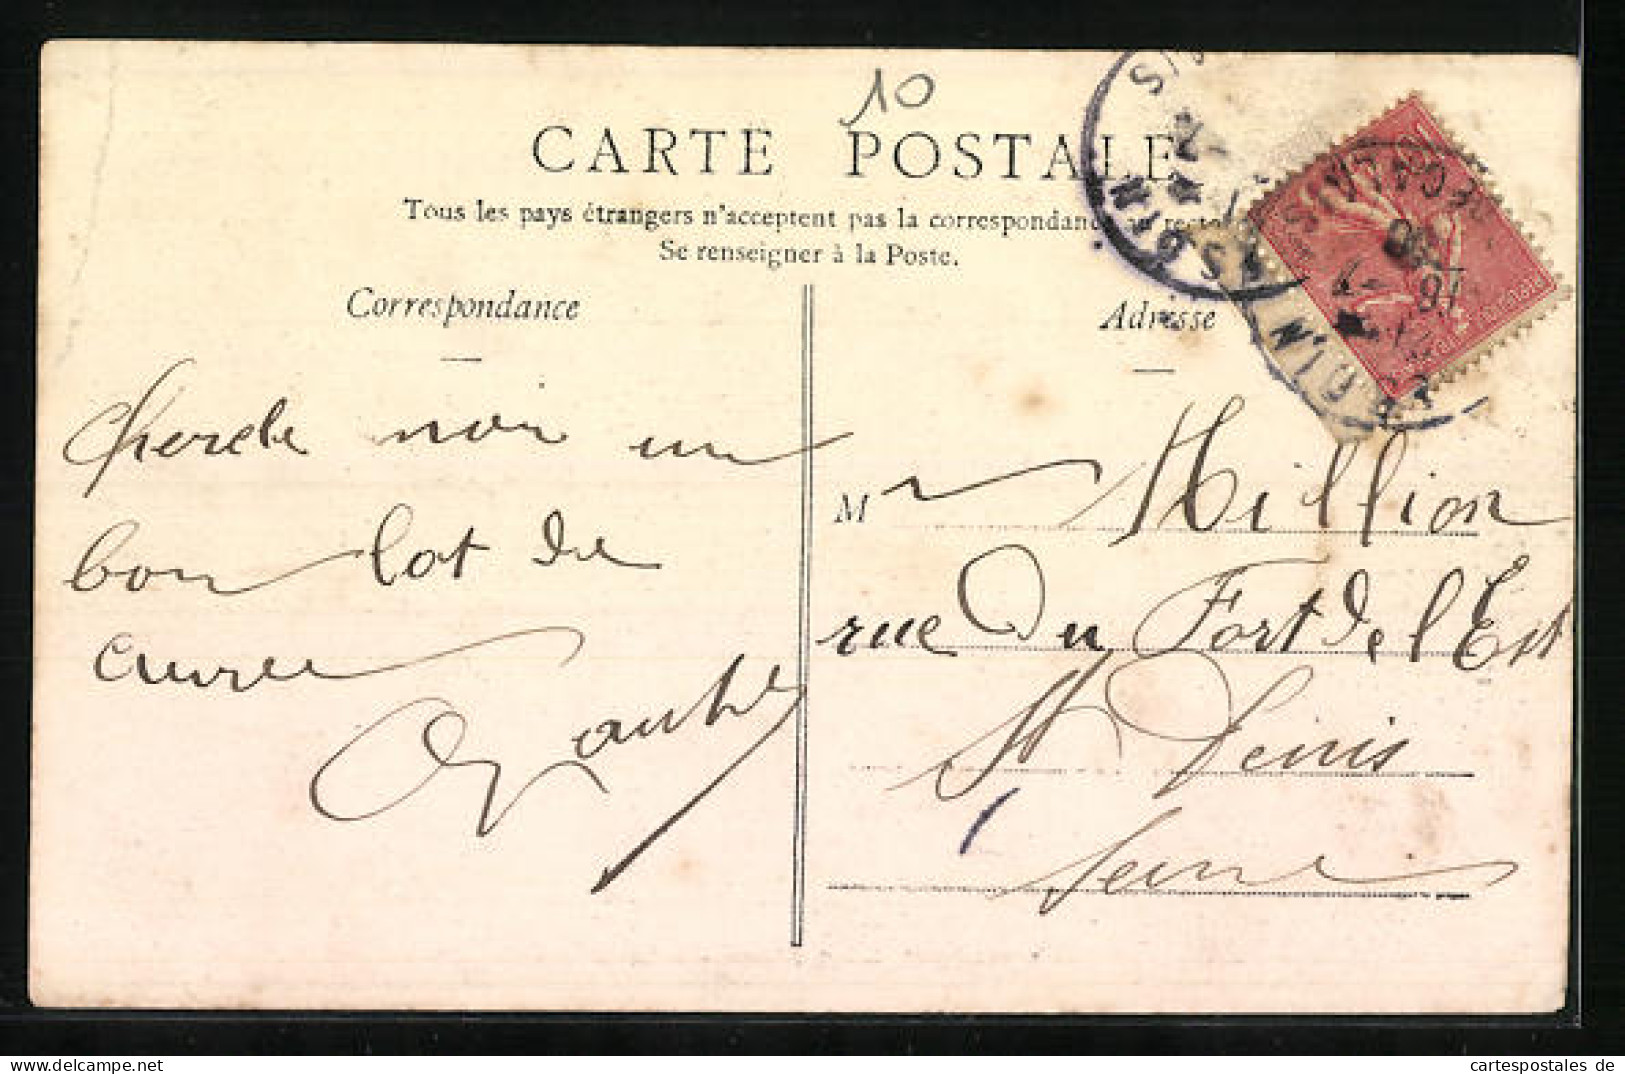 10
CARTE POSTALE
Tous les pays étrangers n'acceptent pas la correspondance au recto
Se renseigner à la Poste.
Correspondance
Cherche moi un
bon lot de
cuivre
Adresse
Mr Million
rue Du Fort de l'Est
St Denis
Seine
cartespostales de